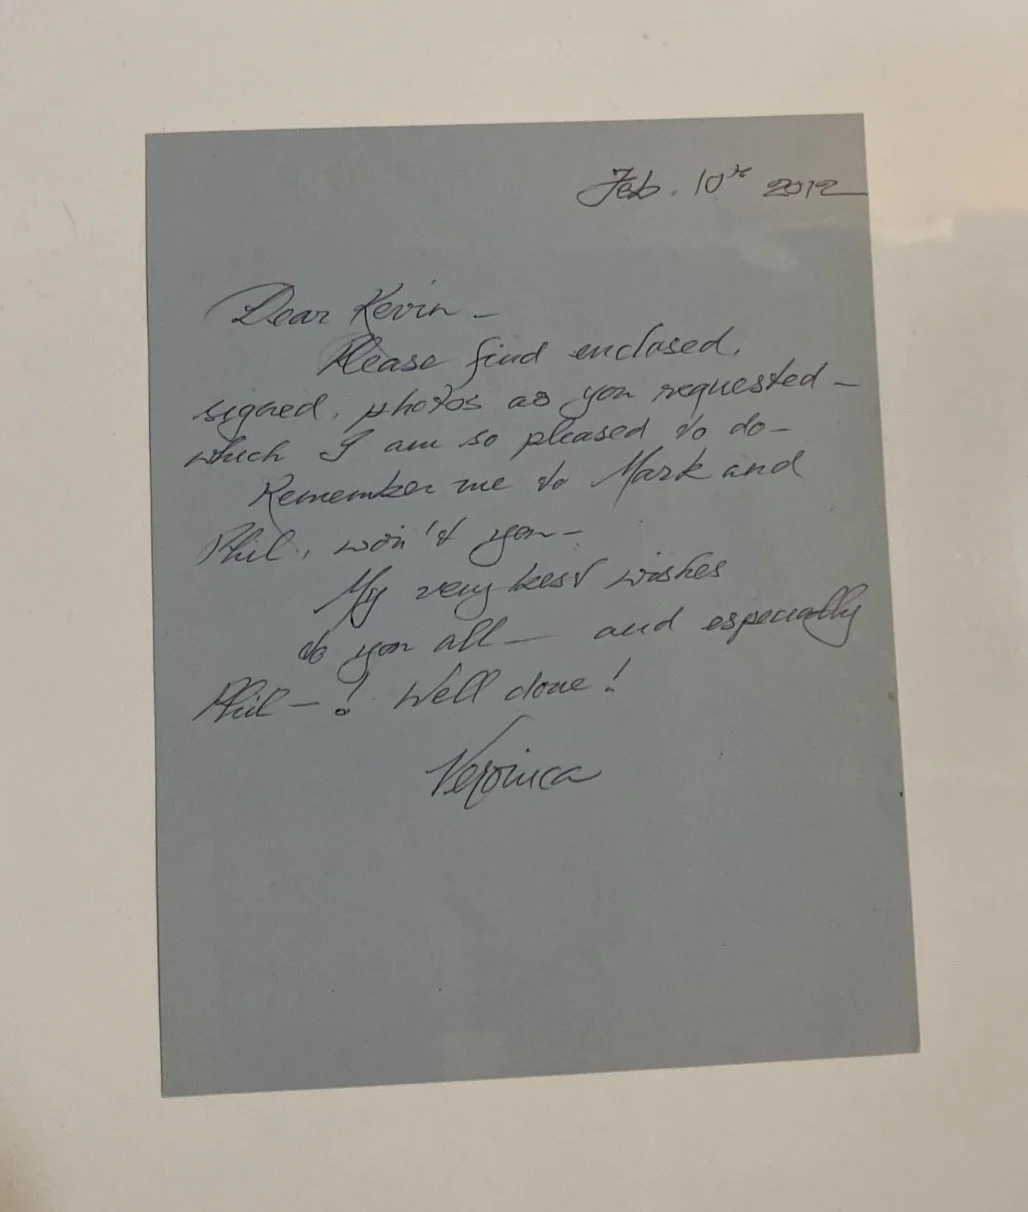 Feb. 10th 2012
Dear Kevin -
Please find enclosed,
signed, photos as you requested -
which I am so pleased to do -
Remember me to Mark and
Phil, won't you -
My very best wishes
to you all - and especially
Phil - ! Well done!
Veronica